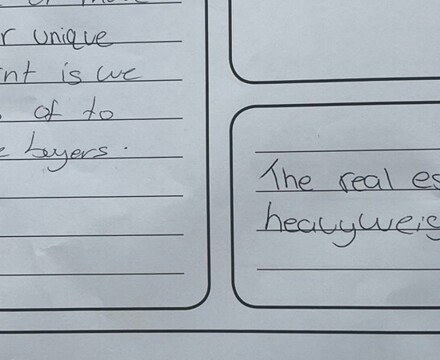 r unique
nt is we
of to
buyers.
The real es
heavyweig